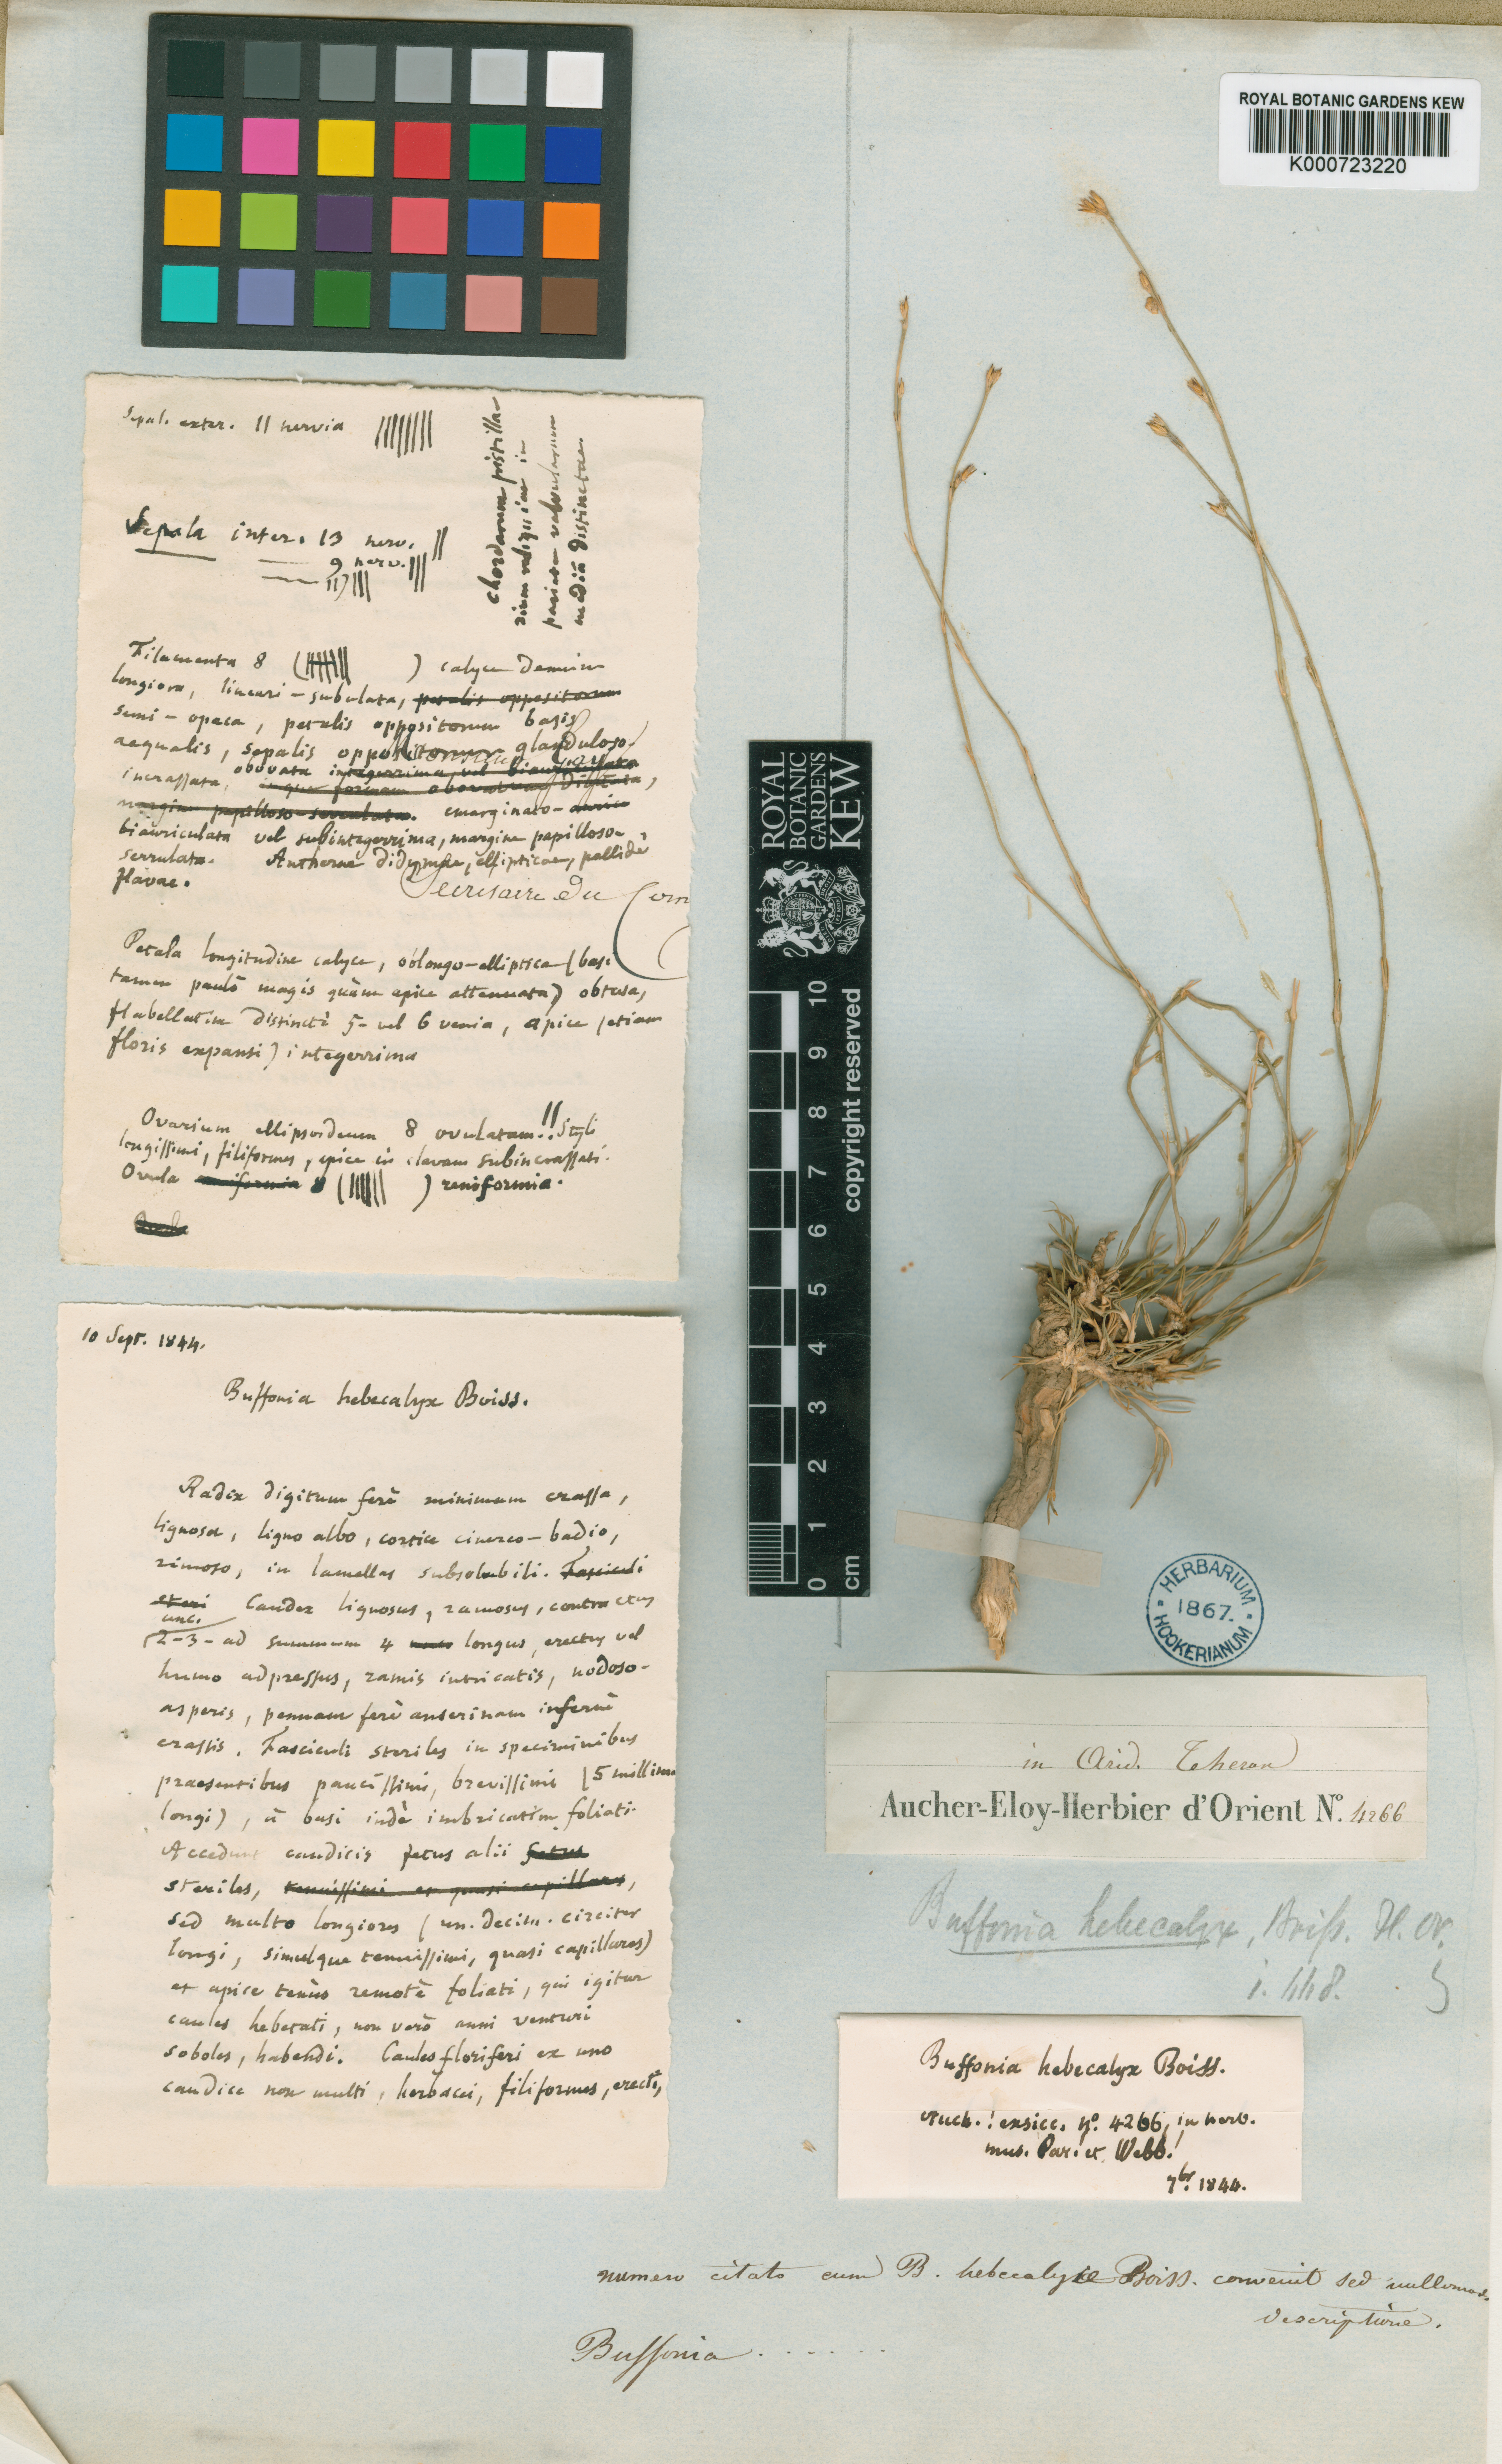 ROYAL BOTANIC GARDENS KEW
K000723220
Sepal. exter. 11 nervia
Sepala inter. 13 nerv.
9 nerv.
11)
chordarum pistilla-
rium
pariete valvularum
mediâ distinctae.
Filamenta 8 ( ) calyce demum
longiora, lineari-subulata, petalis oppositorum
semi-opaca, petalis oppositorum basis
aequalis, sepalis oppositorum glanduloso-
incrassata, obovata integerrima vel biauriculata
obovatam digitata,
margine papilloso-serrulata. emarginato-
biauriculata vel subintegerrima, margine papilloso-
serrulata. Antherae didymae, ellipticae, pallidè
flavae.
Secretaire du Com
Petala longitudine calyce, oblongo-elliptica (basi
tamen paulò magis quàm apice attenuata) obtusa,
flabellatim distinctè 5- vel 6 venia, apice (etiam
floris expansi) integerrima
Ovarium ellipsoideum 8 ovulatum!! Styli
longissimi, filiformes, apice in clavam subincrassati.
Ovula reniformia 8 ( ) reniformia.
10 Sept. 1844.
Buffonia hebecalyx Boiss.
Radix digitum ferè minimum crassa,
lignosa, ligno albo, cortice cinereo-badio,
rimoso, in lamellas subsolubili. Fasciculi
steri Caudex lignosus, ramosus, contractus
unc.
(2-3- ad summum 4 longus, erectus vel
humo adpressus, ramis intricatis, nodoso-
asperis, pennam ferè anserinam infernè
crassis. Fasciculi steriles in speciminibus
praesentibus paucissimi, brevissimi (5 millim.
longi), à basi indè imbricatim foliati.
Accedunt caudicis fetus alii fetus
steriles, tenuissimi et quasi capillares,
sed multo longiores (un. decim. circiter
longi, simulque tenuissimi, quasi capillares)
et apice tenùs remotè foliati, qui igitur
caules hebetati, non verò anni venturi
soboles, habendi. Caules floriferi ex uno
caudice non multi, herbacei, filiformes, erecti,
ROYAL
BOTANIC
GARDENS
KEW
copyright reserved
10
9
8
7
6
5
4
3
2
1
0
cm
HERBARIUM
1867.
HOOKERIANUM
in Arid. Theran
Aucher-Eloy-Herbier d'Orient Nº. 4266
Buffonia hebecalyx, Boiss. Fl. Or.
i. 448.
Buffonia hebecalyx Boiss.
Auch.! exsicc. nº. 4266, in herb.
mus. Par! et Webb!
7br. 1844.
numero citato cum B. hebecalyce Boiss. convenit sed nullomodo
descriptione.
Buffonia . . . . . .